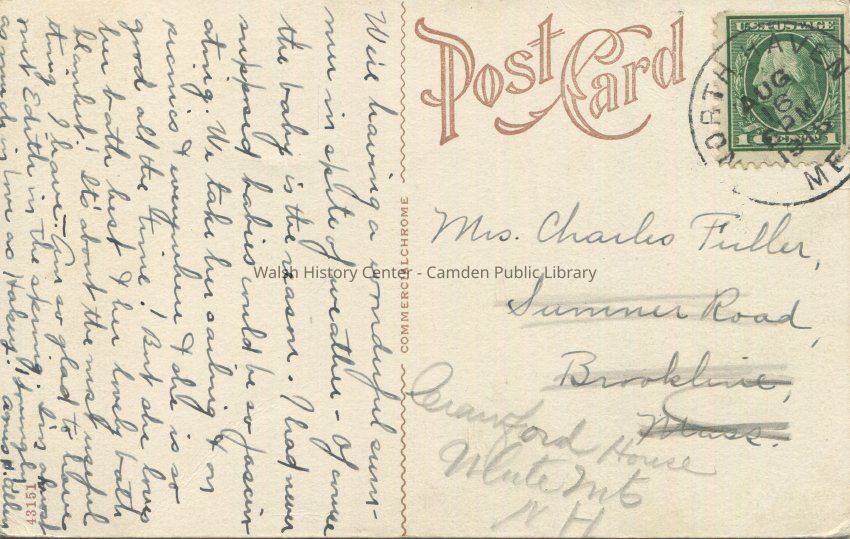 We're having a wonderful sum-
mer in spite of weather - Of course
the baby is the reason. I had never
supposed babies could be so fascin
ating. We take her sailing & on
picnics & everywhere & she is so
good all the time! But she loves
her bath best & her lovely bath
blanket! It's about the most useful
thing I have! Am so glad to have
met Edith in the spring. I'm almost
as much in love as Halsey!
COMMERCIALCHROME
43151
Post Card
U.S. POSTAGE
1 CENT 1
NORTH HAVEN
AUG
16
PM
ME
Mrs. Charles Fuller,
Summer Road,
Brookline,
Mass.
Crawford House
White Mts
N H
Walsh History Center - Camden Public Library